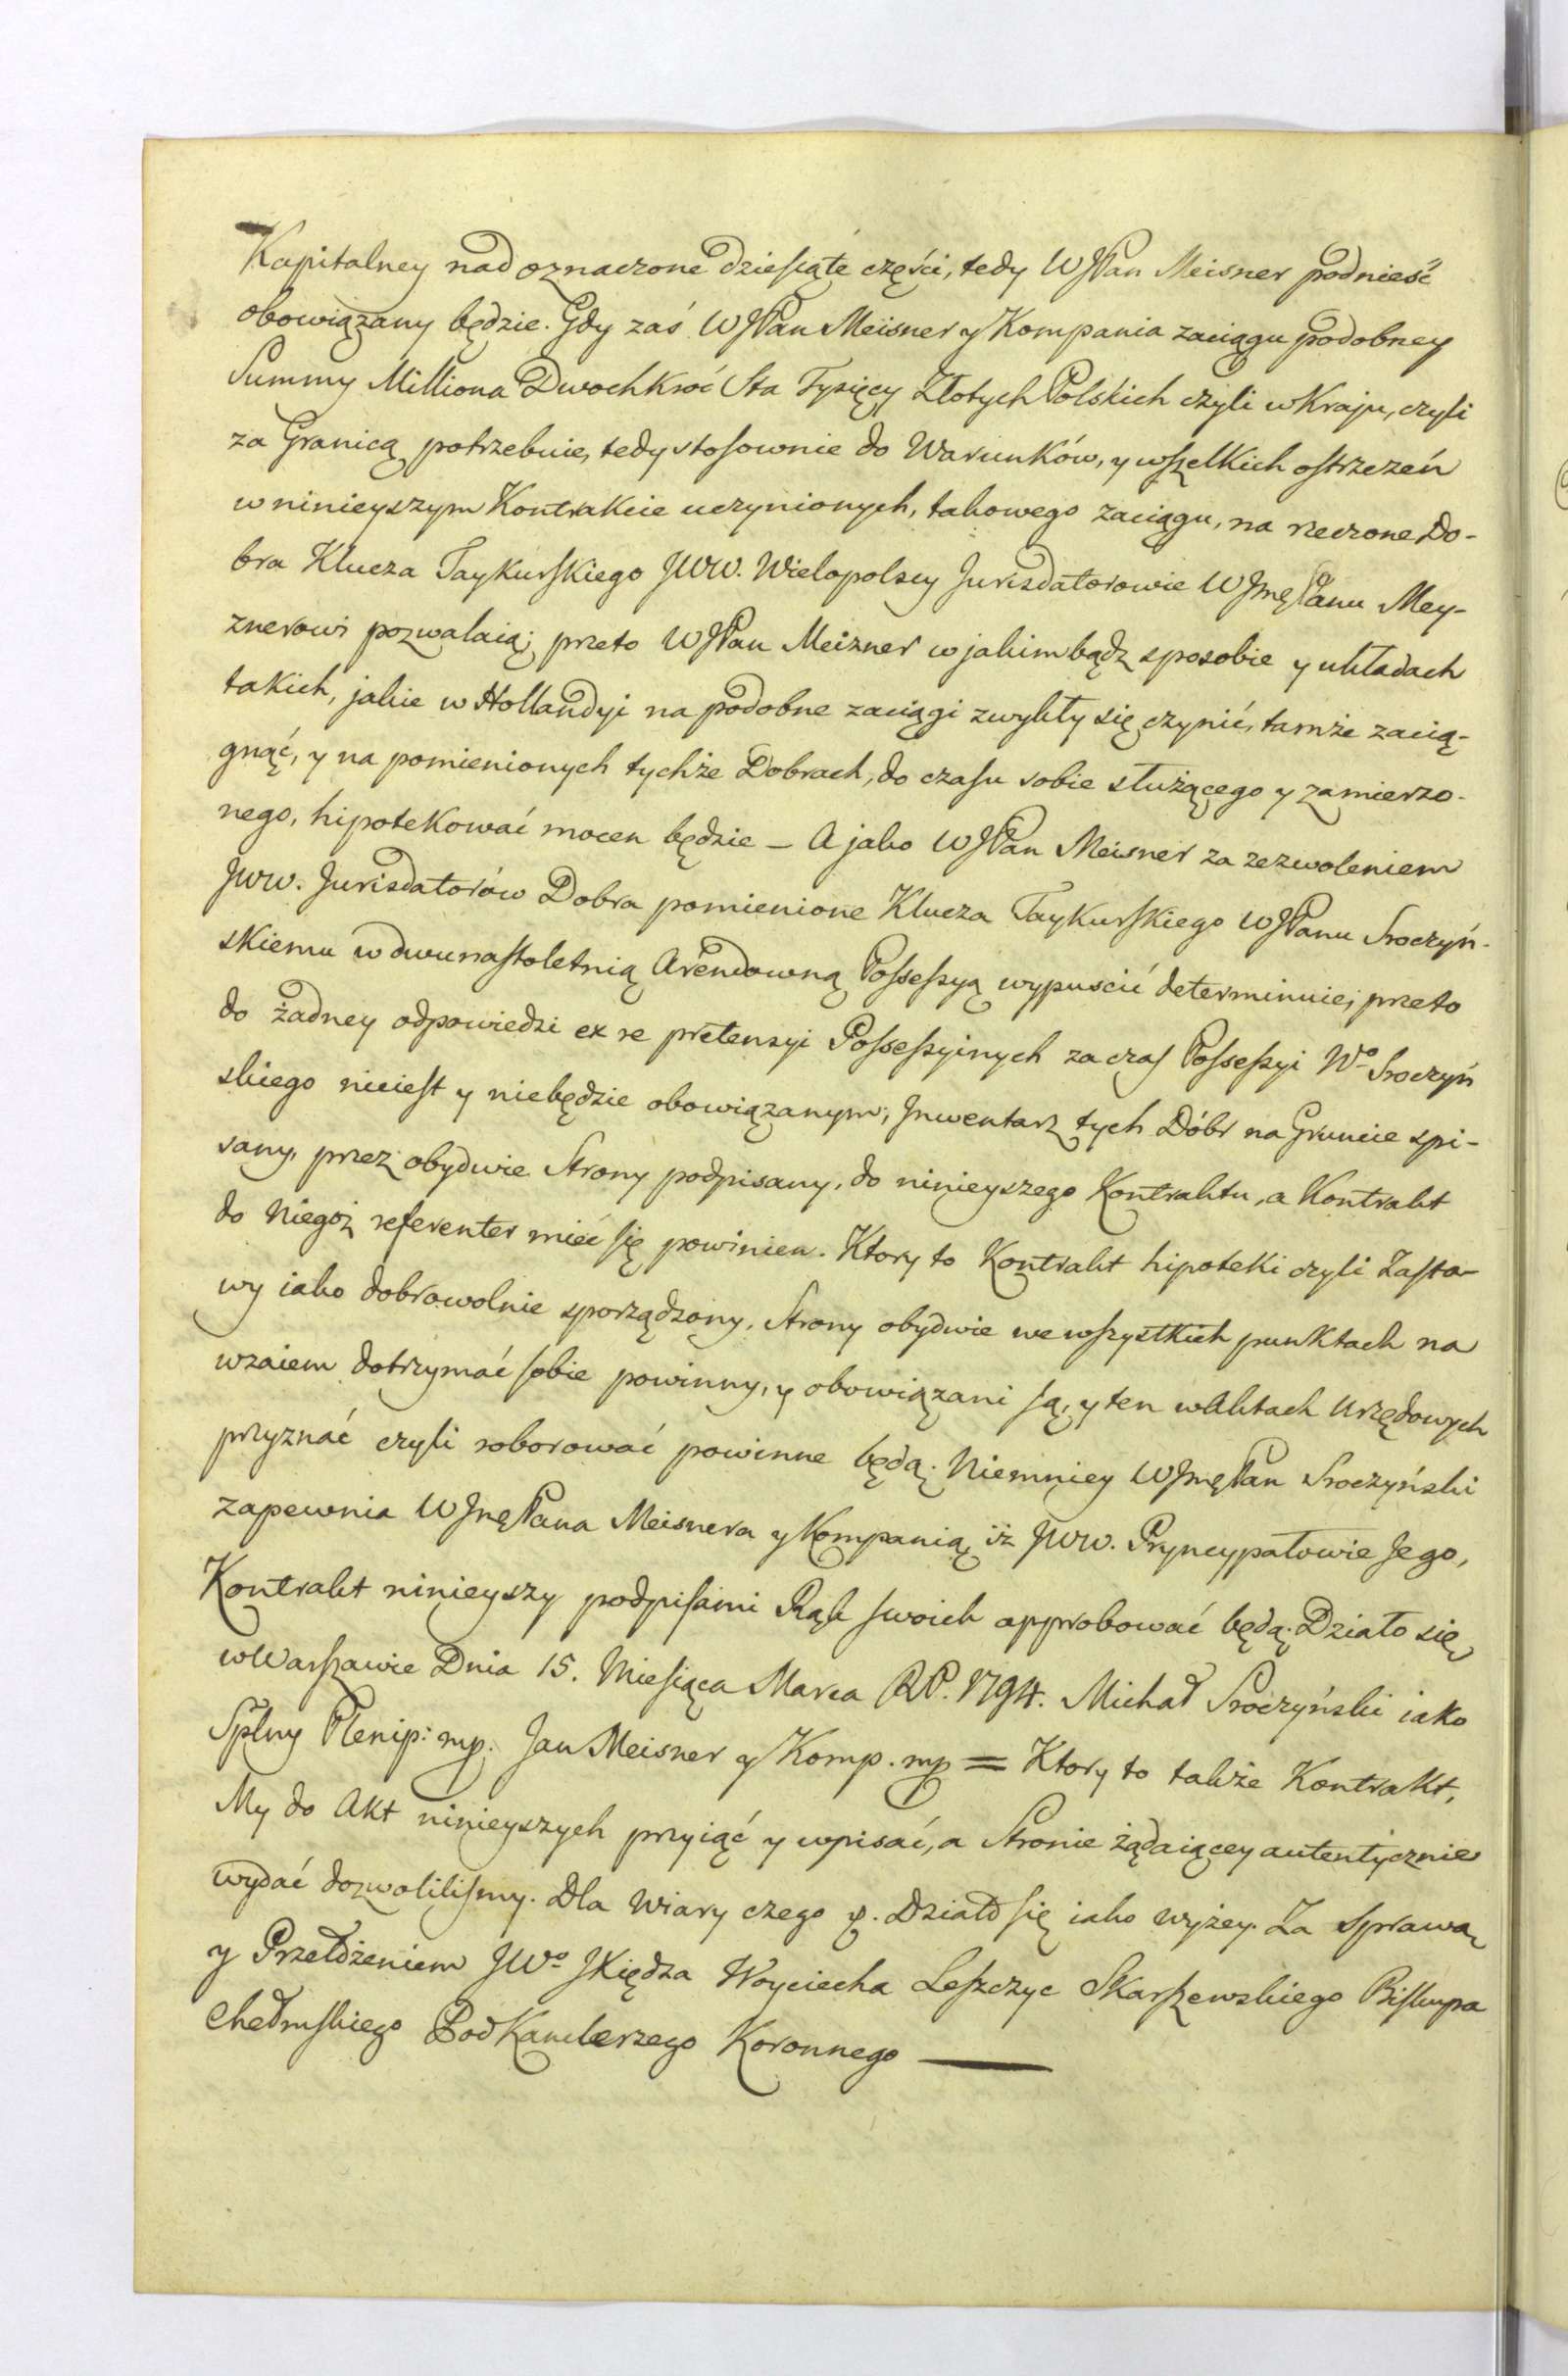 Kapitalney nad oznaczone dziesiąte części, tedy WJPan Meisner podnieść
obowiązany będzie. Gdy zaś WJPan Meisner y Kompania zaciągu podobney
Summy Milliona Dwochkroć Sta Tysięcy Złotych Polskich czyli w Kraju, czyli
za Granicą potrzebuie, tedy stosownie do Warunków, y wszelkich ostrzezeń
w ninieyszym Kontrakcie uczynionych, takowego zaciągu, na rzeczone Do-
bra Klucza Taykurskiego JWW. Wielopolscy Jurisdatorowie WJmć Panu Mey-
znerowi pozwalaią; przeto WJPan Meizner w jakimbądz sposobie y układach
takich, jakie w Hollandyi na podobne zaciągi zwykły się czynić, tamże zacią-
gnąć, y na pomienionych tychże Dobrach, do czasu sobie służącego y zamierzo-
nego, hipotekować mocen będzie – A jako WJPan Meisner za zezwoleniem
JWW. Jurisdatorów Dobra pomienione Klucza Taykurskiego WJPanu Sroczyń-
skiemu w dwunastoletnią Arendowną Possessyą wypuscić determinuie; przeto
do żadney odpowiedzi ex re pretensyi Possessyinych za czas Possessyi Wo Sroczyń
skiego nieiest y niebędzie obowiązanym; Jnwentarz tych Dóbr na Gruncie spi-
sany, przez obydwie Strony podpisany, do ninieyszego Kontraktu, a Kontrakt
do Niegoż referenter mieć się powinien. Ktory to Kontrakt hipoteki czyli Zasta-
wy iako dobrowolnie sporządzony, Strony obydwie we wszystkich punktach na
wzaiem dotrzymać sobie powinny, y obowiązani są, y ten w Aktach Urzędowych
przyznać czyli roborować powinne będą; Niemniey WJmć Pan Sroczyński
zapewnia WJmć Pana Meisnera y Kompanią iż JWW. Pryncypałowie Jego,
Kontrakt ninieyszy podpisami Rąk swoich approbować będą; Działo się
w Warszawie Dnia 15. Miesiąca Marca RP. 1794. Michał Sroczyński iako
Splny Plenip: mp. Jan Meisner y Komp. mp = Ktory to także Kontrakt,
My do Akt ninieyszych przyiąć y wpisać, a Stronie żądaiącey autentycznie
wydać dozwolilismy. Dla Wiary czego p. Działo się iako wyżey. Za sprawą
y Przełożeniem JWo JXiędza Woyciecha Leszczyc Skarszewskiego Biskupa
Chełmskiego PodKanclerzego Koronnego —